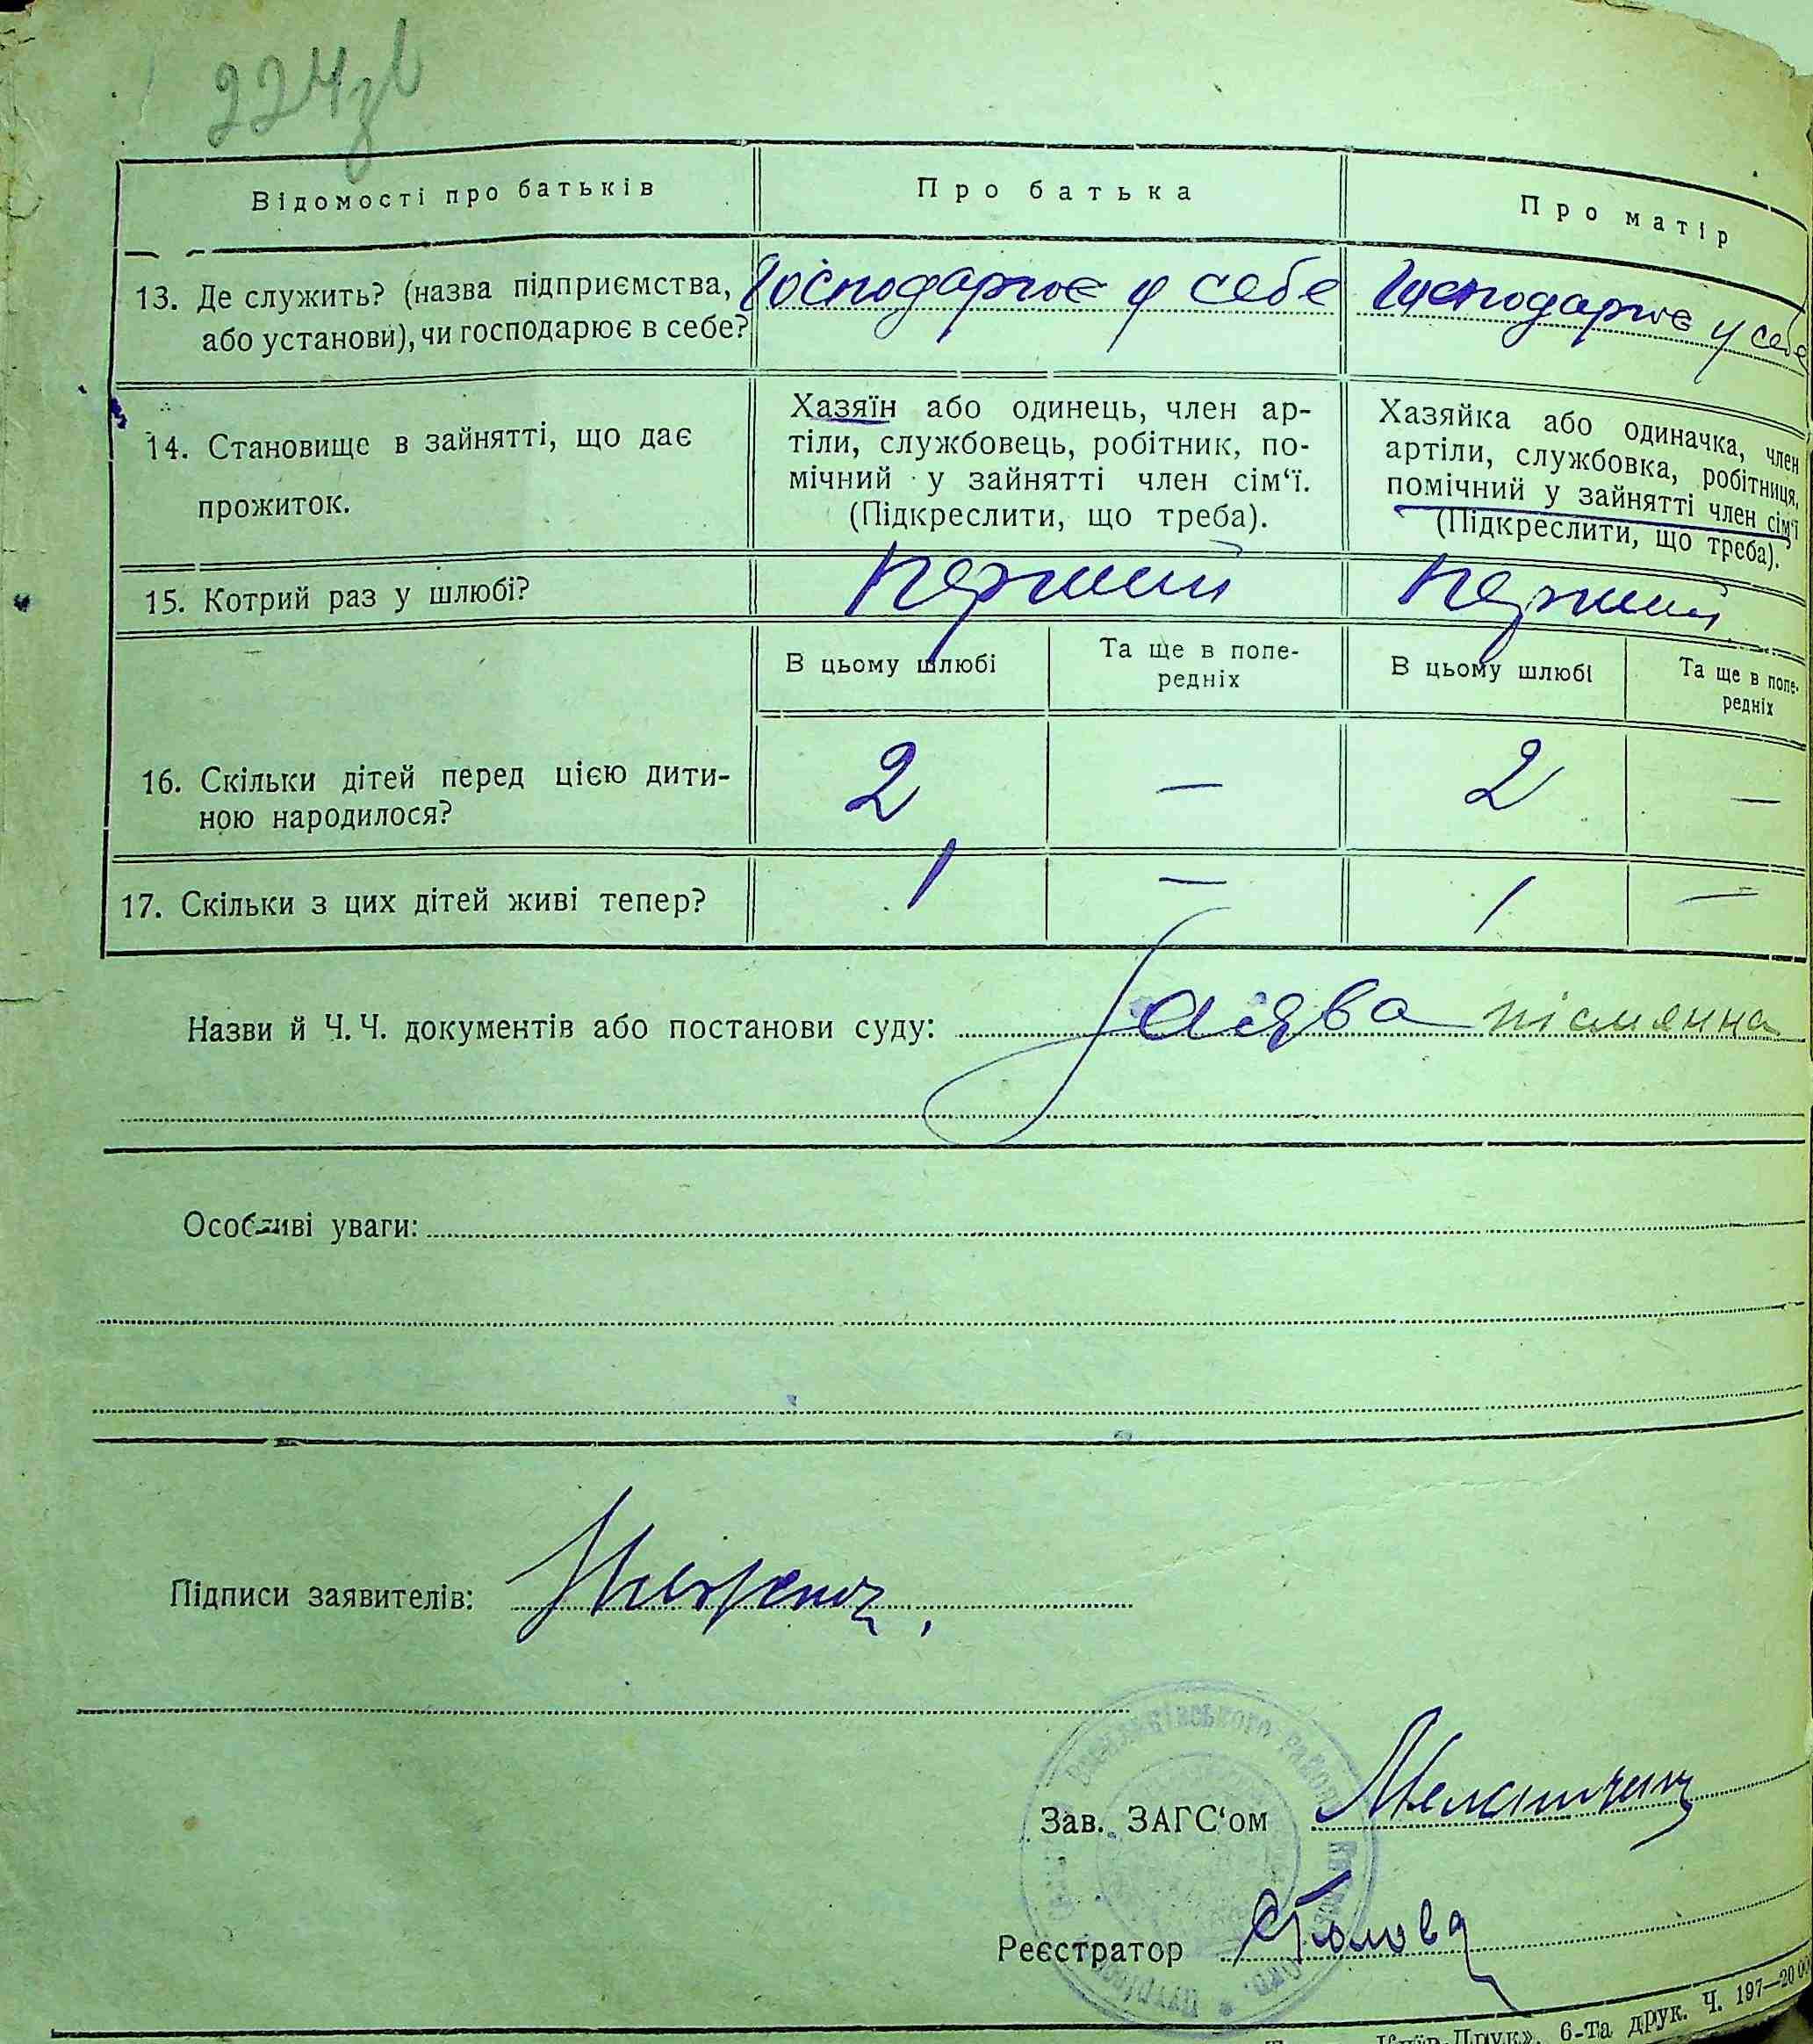 224зв
Відомості про батьків
Про батька
Про матір
13. Де служить? (назва підприємства, або установи), чи господарює в себе?
Господарює у себе
Господарює у себе
14. Становище в зайнятті, що дає прожиток.
Хазяїн або одинець, член ар-
тіли, службовець, робітник, по-
мічний у зайнятті член сім‘ї.
(Підкреслити, що треба).
Хазяйка або одиначка, член
артіли, службовка, робітниця,
помічний у зайнятті член сім‘ї
(Підкреслити, що треба).
15. Котрий раз у шлюбі?
Перший
Перший
В цьому шлюбі
Та ще в попе-
редніх
В цьому шлюбі
Та ще в попе-
редніх
16. Скільки дітей перед цією дити-
ною народилося?
2 — 2 —
17. Скільки з цих дітей живі тепер?
1 — 1 —
Назви й Ч. Ч. документів або постанови суду: Заява пісмянна
Особливі уваги:
Підписи заявителів:
Зав. ЗАГС‘ом
Реєстратор
6-та друк. Ч. 197—20